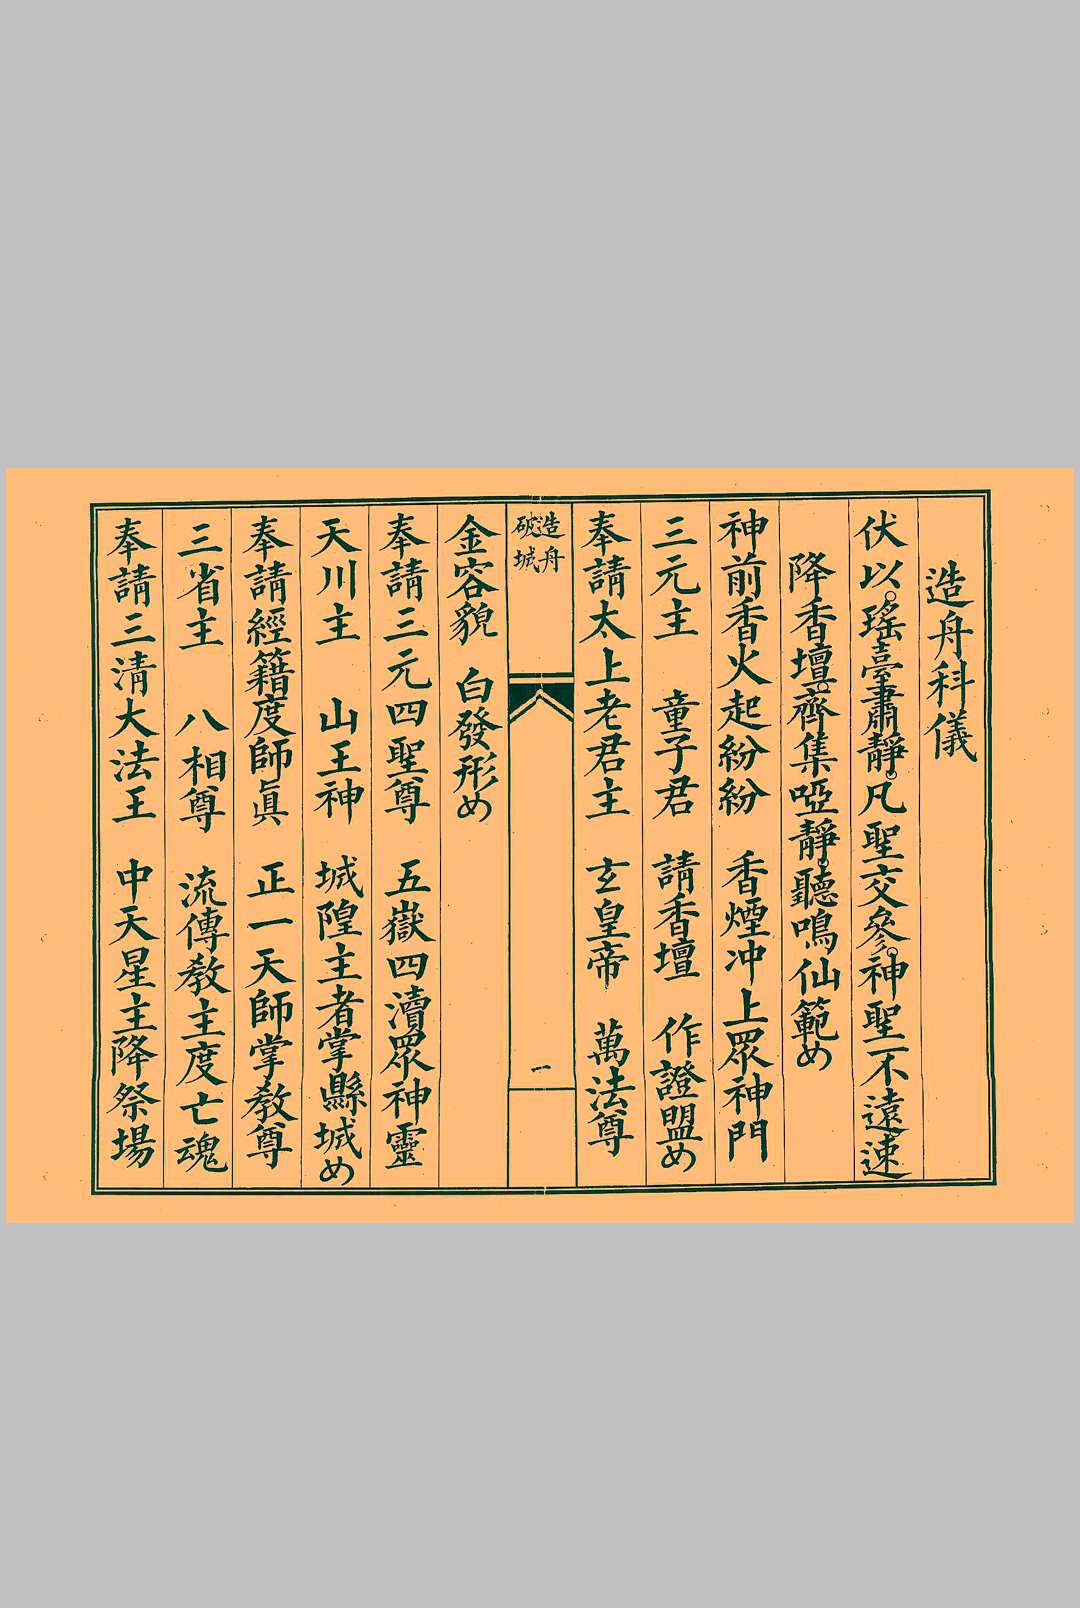 造舟科儀
伏以。瑤臺肅靜。凡聖交參。神聖不遠。速
降香壇。齊集啞靜。聽鳴仙範め
神前香火起紛紛　香煙冲上眾神門
三元主　童子君　請香壇　作證盟め
奉請太上老君主　玄皇帝　萬法尊
造舟
破城
一
金容貌　白發形め
奉請三元四聖尊　五嶽四瀆眾神靈
天川主　山王神　城隍主者掌縣城め
奉請經籍度師眞　正一天師掌教尊
三省主　八相尊　流傳教主度亡魂
奉請三清大法王　中天星主降祭場